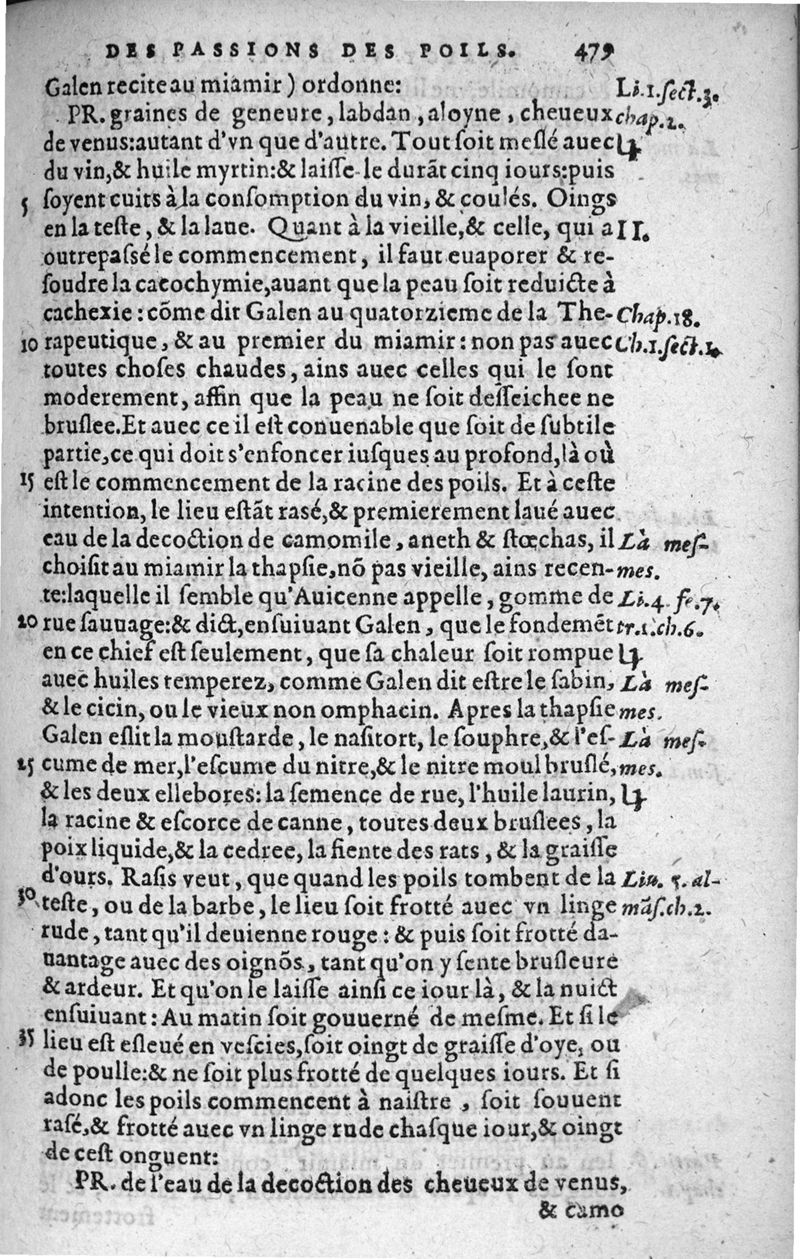 DES PASSIONS DES POILS. 479
Galen recite au miamir) ordonne: Li.1.ſect.3.
PR. graines de geneure, labdan, aloyne, cheueux chap.2.
de venus: autant d'vn que d'autre. Tout ſoit meſlé auec
du vin, & huile myrtin: & laiſſe-le durãt cinq iours: puis
5 ſoyent cuits à la conſomption du vin, & coulés. Oings
en la teſte, & la laue. Quant à la vieille, & celle, qui a II.
outrepaſſé le commencement, il faut euaporer & re-
ſoudre la cacochymie, auant que la peau ſoit reduicte à
cachexie: cõme dit Galen au quatorzieme de la The- Chap.18.
10 rapeutique, & au premier du miamir: non pas auec Ch.1.ſect.1.
toutes choſes chaudes, ains auec celles qui le ſont
moderement, affin que la peau ne ſoit deſſeichee ne
bruſlee. Et auec ce il eſt conuenable que ſoit de ſubtile
partie, ce qui doit s'enfoncer iuſques au profond, là où
15 eſt le commencement de la racine des poils. Et à ceſte
intention, le lieu eſtãt rasé, & premierement laué auec
eau de la decoction de camomile, aneth & ſtœchas, il Là meſ-
choiſit au miamir la thapſie, nõ pas vieille, ains recen- mes.
te: laquelle il ſemble qu'Auicenne appelle, gomme de Li.4. fe.7.
20 rue ſauuage: & dict, enſuiuant Galen, que le fondemẽt tr.1.ch.6.
en ce chief eſt ſeulement, que ſa chaleur ſoit rompue
auec huiles temperez, comme Galen dit eſtre le ſabin, Là meſ-
& le cicin, ou le vieux non omphacin. Apres la thapſie mes.
Galen eſlit la mouſtarde, le naſitort, le ſouphre, & l'eſ- Là meſ-
25 cume de mer, l'eſcume du nitre, & le nitre moul bruſlé, mes.
& les deux ellebores: la ſemence de rue, l'huile laurin,
la racine & eſcorce de canne, toutes deux bruſlees, la
poix liquide, & la cedree, la fiente des rats, & la graiſſe
d'ours. Raſis veut, que quand les poils tombent de la Liu. 5. al-
30 teſte, ou de la barbe, le lieu ſoit frotté auec vn linge mãſ.ch.2.
rude, tant qu'il deuienne rouge: & puis ſoit frotté da-
uantage auec des oignõs, tant qu'on y ſente bruſleure
& ardeur. Et qu'on le laiſſe ainſi ce iour là, & la nuict
enſuiuant: Au matin ſoit gouuerné de meſme. Et ſi le
35 lieu eſt eſleué en veſcies, ſoit oingt de graiſſe d'oye, ou
de poulle: & ne ſoit plus frotté de quelques iours. Et ſi
adonc les poils commencent à naiſtre, ſoit ſouuent
raſé, & frotté auec vn linge rude chaſque iour, & oingt
de ceſt onguent:
PR. de l'eau de la decoction des cheueux de venus,
& camo